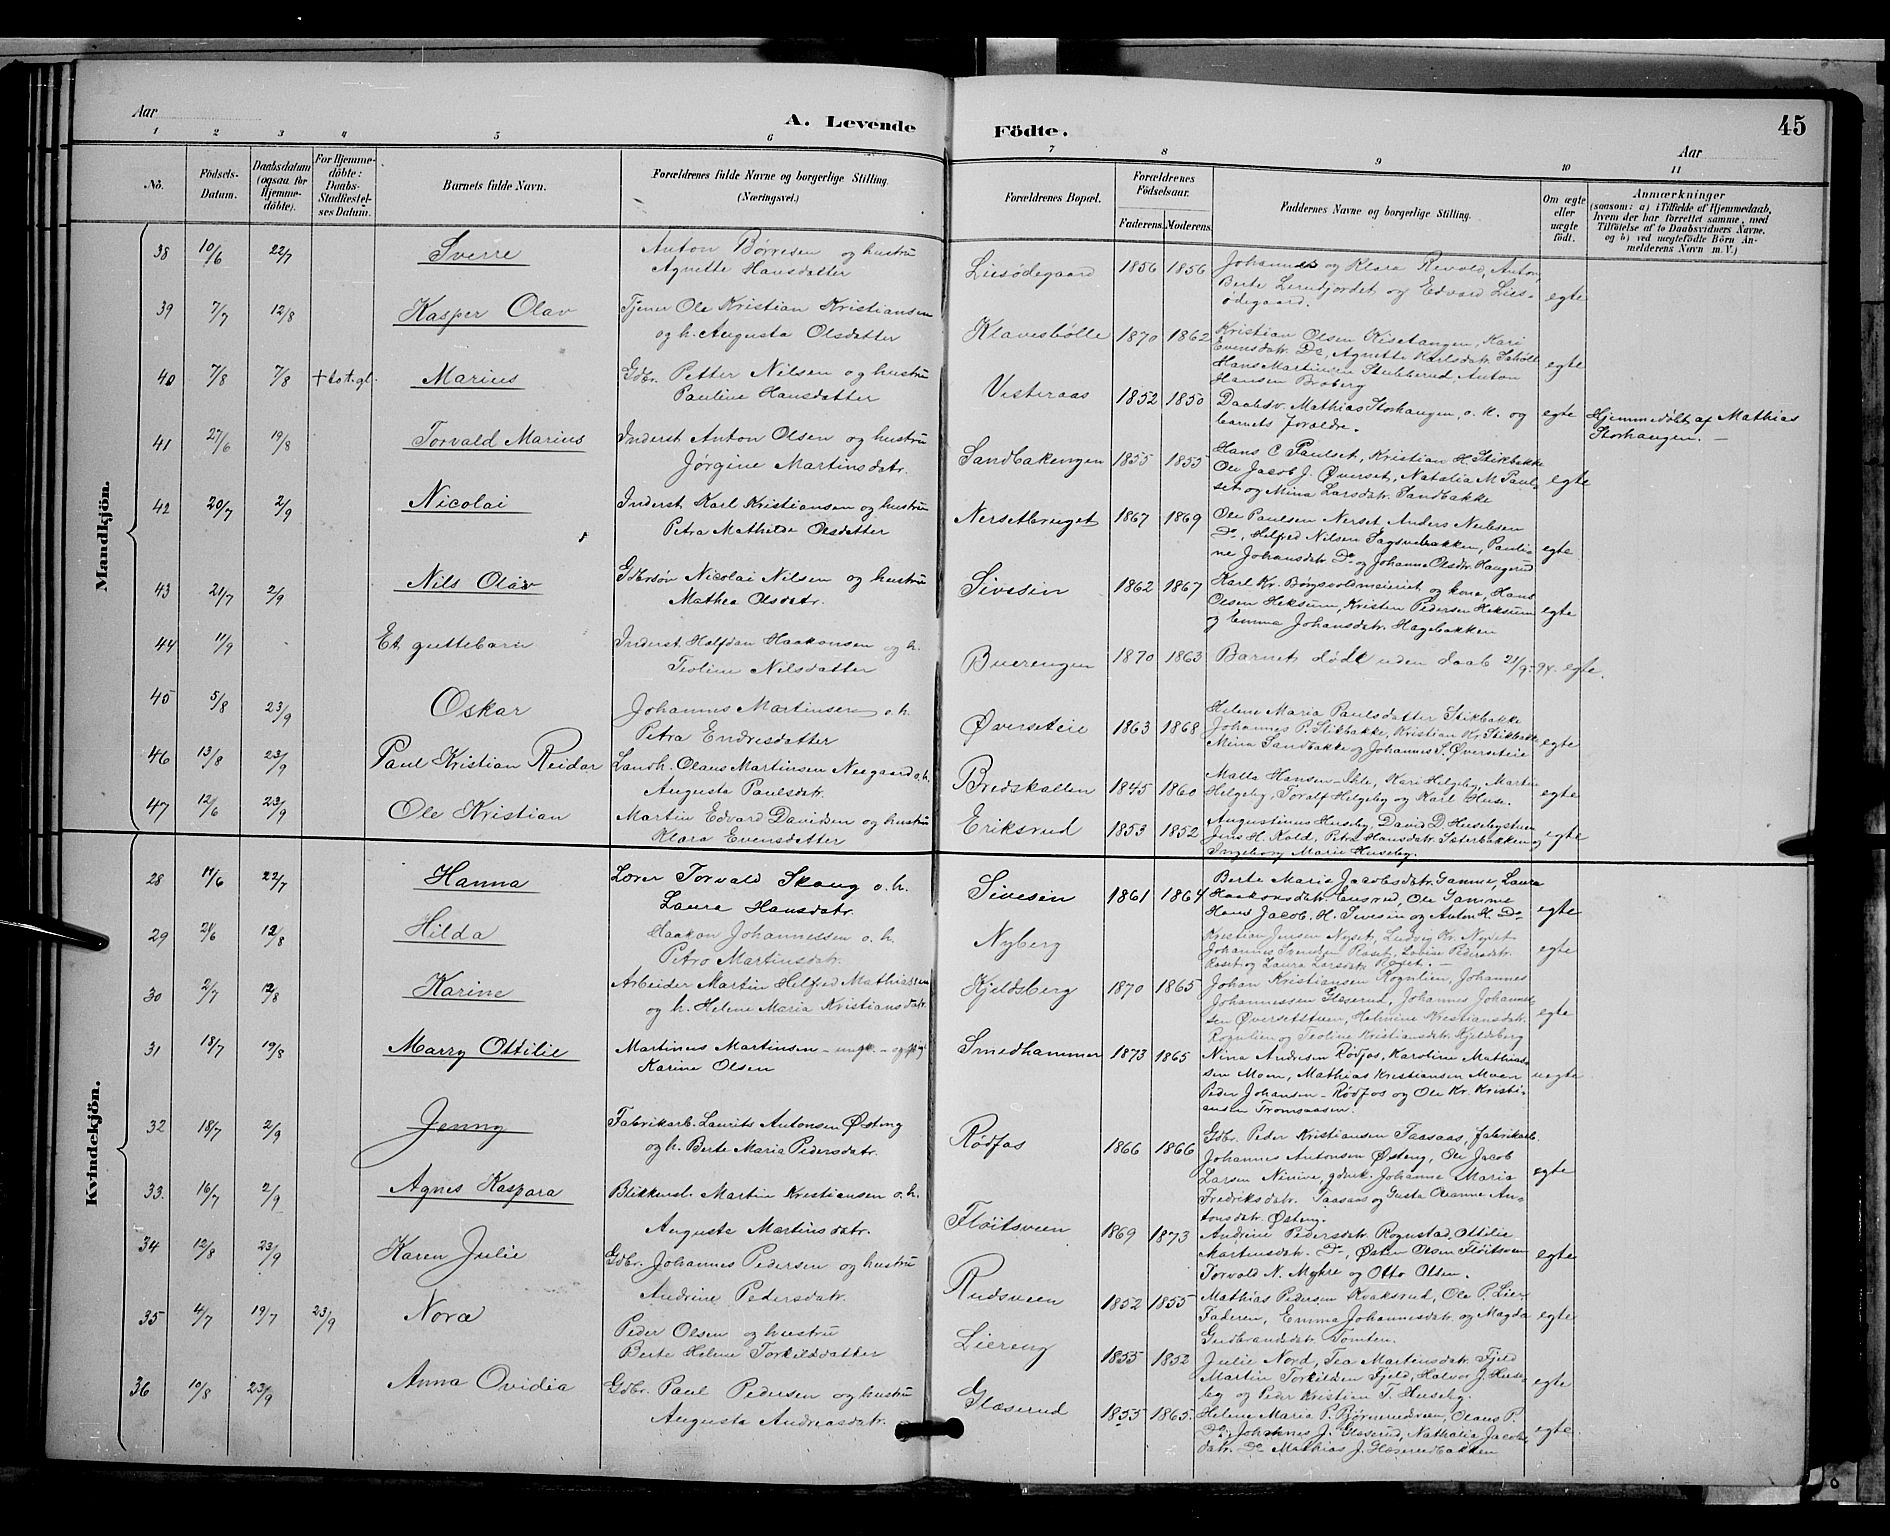 Aar
A. Levende Födte.
45
Aar
1 2 3 4 5 6 7 8 9 10 11
No.
Födsels-Datum.
Daabsdatum (ogsaa for Hjemmedöbte).
For Hjemmedöbte: Daabs-Stadfæstelses Datum.
Barnets fulde Navn.
Forældrenes fulde Navne og borgerlige Stilling. (Næringsvei.)
Forældrenes Bopæl.
Forældrenes Födselsaar.
Faderens. Moderens.
Faddernes Navne og borgerlige Stilling.
Om ægte eller uægte födt.
Anmærkninger
(saasom: a) i Tilfælde af Hjemmedaab, hvem der har forrettet samme, med Tilföielse af to Daabsvidners Navne. og b) ved uægtefödte Börn Anmelderens Navn m. V.)
Mandkjön.
38 10/6 22/7 Sverre Anton Børresen og hustru
Agnette Hansdatter
Liesødegaard 1856 1856 Johannes og Klara Revold, Anton,
Berte Lerudjordet og Edvard Lies-
ødegaard. egte
39 7/7 12/8 Kasper Olav Tjener Ole Kristian Kristiansen
og h. Augusta Olsdatter
Klavesbølle 1870 1862 Kristian Olsen Kisetangen, Kari
Evensdatr. Do, Agnette Karlsdatr.
Hans Martinsen Stubberud, Anton
Hansen Broberg egte
40 7/8 7/8 Marius Gdbr. Petter Nilsen og hustru
Pauline Hansdatter
Vesteraas 1852 1850 Daabsv. Mathias Storhaugen, o. h. og
barnets forældre. egte Hjemmedøbt af Mathias
Storhaugen. –
41 27/6 19/8 Torvald Marius Inderst Anton Olsen og hustru
Jørgine Martinsdatr.
Sandbakengen 1855 1855 Hans C Paulset, Kristian H. Stikbakke
Ole Jacob J. Øverset, Natalia M Paul-
set og Mina Larsdatr. Sandbakke egte
42 20/7 2/9 Nicolai Inderst Karl Kristiansen og hustru
Petra Mathilde Olsdatter
Nersetbruget 1867 1869 Ole Paulsen Nerset Anders Neilsen
Do, Helfred Nilsen Sagsvebakken, Pauli-
ne Johansdatr. Do og Johanne Olsdtr. Haugerud egte
43 21/7 2/9 Nils Olav Gdbrsøn Nicolai Nilsen og hustru
Mathea Olsdatr.
Sivesin 1862 1867 Karl Kr. Børgsvoldmeieriet og kone, Hans
Olsen Heksum, Kristen Pedersen Heksum
og Emma Johansdatr. Hagebakken egte
44 11/9 Et guttebarn Inderst Halfdan Haakonsen og h.
Teoline Nilsdatter
Buerengen 1870 1863 Barnet døde uden daab 21/9-94. egte.
45 5/8 23/9 Oskar Johannes Martinsen o. h.
Petra Endresdatter
Øverseteie 1863 1868 Helene Maria Paulsdatter Stikbakke
Johannes P. Stikbakke, Kristian H. Stikbakke
Mina Sandbakke og Johannes S. Øverseteie egte
46 13/8 23/9 Paul Kristian Reidar Landh. Olaus Martinsen Neegaard o. h.
Augusta Paulsdatr.
Bredskallen 1845 1860 Malla Hansen-Ihle, Kari Helgeby, Martin
Helgeby, Toralf Helgeby og Karl Huse. egte
47 12/6 23/9 Ole Kristian Martin Edvard Davidsen og hustru
Klara Evensdatter
Eriksrud 1853 1852 Augustinus Huseby, David D. Husebystuen
Jens H. Kold, Petra Hansdatr. Sæterbakken og
Ingeborg Marie Huseby. egte
Kvindekjön.
28 11/6 22/7 Hanna Lærer Torvald Skaug o. h.
Laura Hansdatr.
Sivesin 1861 1864 Berte Marie Jacobsdatr. Gamme, Laura
Haakonsdatr. Ensrud, Ole Gamme
Hans Jacob. H. Sivesin og Anton H. Do egte
29 2/6 12/8 Hilda Haakon Johannessen o. h.
Petro Martinsdatr.
Nyberg Kristian Jensen Nyset, Ludvig Kr. Nyset
Johannes Svendsen Roset, Lovise Pedersdatr.
Roset og Laura Larsdatr. Roset. – egte
30 2/7 12/8 Karine Arbeider Martin Helfred Mathiassen
og h. Helene Maria Kristiansdatr.
Kjeldsberg 1870 1865 Johan Kristiansen Rognlien, Johannes
Johannessen Glæserud, Johannes Johannes-
sen Øversetstuen, Helmine Kristiansdatr.
Rognlien og Teoline Kristiansdatr. Kjeldsberg egte
31 18/7 19/8 Marry Ottilie Martinus Martinsen – ungk. – og pige
Karine Olsen
Smedhammer 1873 1865 Nina Andersen Rødfos, Karoline Mathias-
sen Moen, Mathias Kristiansen Moen
Peder Johansen – Rødfos og Ole Kr. Kristi-
ansen Tromsaasen. uegte
32 18/7 2/9 Jenny Fabrikarb. Laurits Antonsen Østeng
og h. Berte Maria Pedersdatr.
Rødfos 1866 1866 Gdbr. Peder Kristiansen Taasaas, fabrikarb.
Johannes Antonsen Østeng, Ole Jacob
Larsen Ninive, gdbrk. Johanne Maria
Fredriksdatr. Taasaas og Gusta Oleanne An-
tonsdatr. Østeng. egte
33. 16/7 2/9 Agnes Kaspara Blikkensl. Martin Kristiansen o. h.
Auguste Martinsdatr.
Fløitsveen 1869 1873 Andrine Pedersdatr. Rognstad, Ottilie
Martinsdatr. Do, Østen Olsen Fløitsveen
Torvald N. Myhre og Otto Olsen. egte
34 12/8 23/9 Karen Julie Gdbr. Johannes Pedersen og hustru
Andrine Pedersdatr.
Rudsveen 1852 1855 Mathias Pedersen Kvaksrud, Ole P. Lier
Faderen, Emma Johannesdatr. og Magda
Gudbrandsdatr. Tomten. egte
35 4/7 19/7 23/9 Nora Peder Olsen og hustru
Berte Helene Torkildsdatter
Liereng 1855 1852 Julie Nord, Tea Martinsdatr. Fjeld
Martin Torkildsen Fjeld, Halvor J. Huse-
by og Peder Kristian T. Huseby. egte
36 10/8 23/9 Anna Ovidia Gdbr. Paul Pedersen og hustru
Augusta Andreasdatr.
Glæserud 1855 1865. Helene Maria P. Bjørnerudveen, Olaus P.
Do, Johannes J. Glæserud, Nathalia Jacobs-
datr. Do Mathias J. Glæserudbakken egte.